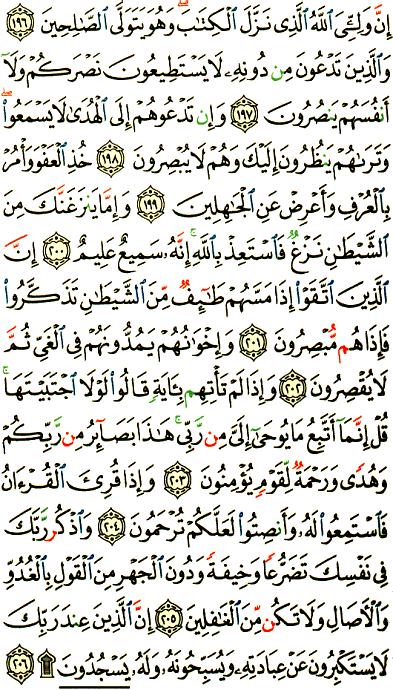 إِنَّ وَلِـِّۧيَ ٱللَّهُ ٱلَّذِى نَزَّلَ ٱلْكِتَٰبَ ۖ وَهُوَ يَتَوَلَّى ٱلصَّٰلِحِينَ ۝١٩٦
وَٱلَّذِينَ تَدْعُونَ مِن دُونِهِۦ لَا يَسْتَطِيعُونَ نَصْرَكُمْ وَلَآ
أَنفُسَهُمْ يَنصُرُونَ ۝١٩٧ وَإِن تَدْعُوهُمْ إِلَى ٱلْهُدَىٰ لَا يَسْمَعُوا۟ ۖ
وَتَرَىٰهُمْ يَنظُرُونَ إِلَيْكَ وَهُمْ لَا يُبْصِرُونَ ۝١٩٨ خُذِ ٱلْعَفْوَ وَأْمُرْ
بِٱلْعُرْفِ وَأَعْرِضْ عَنِ ٱلْجَٰهِلِينَ ۝١٩٩ وَإِمَّا يَنزَغَنَّكَ مِنَ
ٱلشَّيْطَٰنِ نَزْغٌ فَٱسْتَعِذْ بِٱللَّهِ ۚ إِنَّهُۥ سَمِيعٌ عَلِيمٌ ۝٢٠٠ إِنَّ
ٱلَّذِينَ ٱتَّقَوْا۟ إِذَا مَسَّهُمْ طَٰٓئِفٌ مِّنَ ٱلشَّيْطَٰنِ تَذَكَّرُوا۟
فَإِذَا هُم مُّبْصِرُونَ ۝٢٠١ وَإِخْوَٰنُهُمْ يَمُدُّونَهُمْ فِى ٱلْغَىِّ ثُمَّ
لَا يُقْصِرُونَ ۝٢٠٢ وَإِذَا لَمْ تَأْتِهِم بِـَٔايَةٍ قَالُوا۟ لَوْلَا ٱجْتَبَيْتَهَا ۚ
قُلْ إِنَّمَآ أَتَّبِعُ مَا يُوحَىٰٓ إِلَىَّ مِن رَّبِّى ۚ هَٰذَا بَصَآئِرُ مِن رَّبِّكُمْ
وَهُدًى وَرَحْمَةٌ لِّقَوْمٍ يُؤْمِنُونَ ۝٢٠٣ وَإِذَا قُرِئَ ٱلْقُرْءَانُ
فَٱسْتَمِعُوا۟ لَهُۥ وَأَنصِتُوا۟ لَعَلَّكُمْ تُرْحَمُونَ ۝٢٠٤ وَٱذْكُر رَّبَّكَ
فِى نَفْسِكَ تَضَرُّعًا وَخِيفَةً وَدُونَ ٱلْجَهْرِ مِنَ ٱلْقَوْلِ بِٱلْغُدُوِّ
وَٱلْءَاصَالِ وَلَا تَكُن مِّنَ ٱلْغَٰفِلِينَ ۝٢٠٥ إِنَّ ٱلَّذِينَ عِندَ رَبِّكَ
لَا يَسْتَكْبِرُونَ عَنْ عِبَادَتِهِۦ وَيُسَبِّحُونَهُۥ وَلَهُۥ يَسْجُدُونَ ۩ ۝٢٠٦